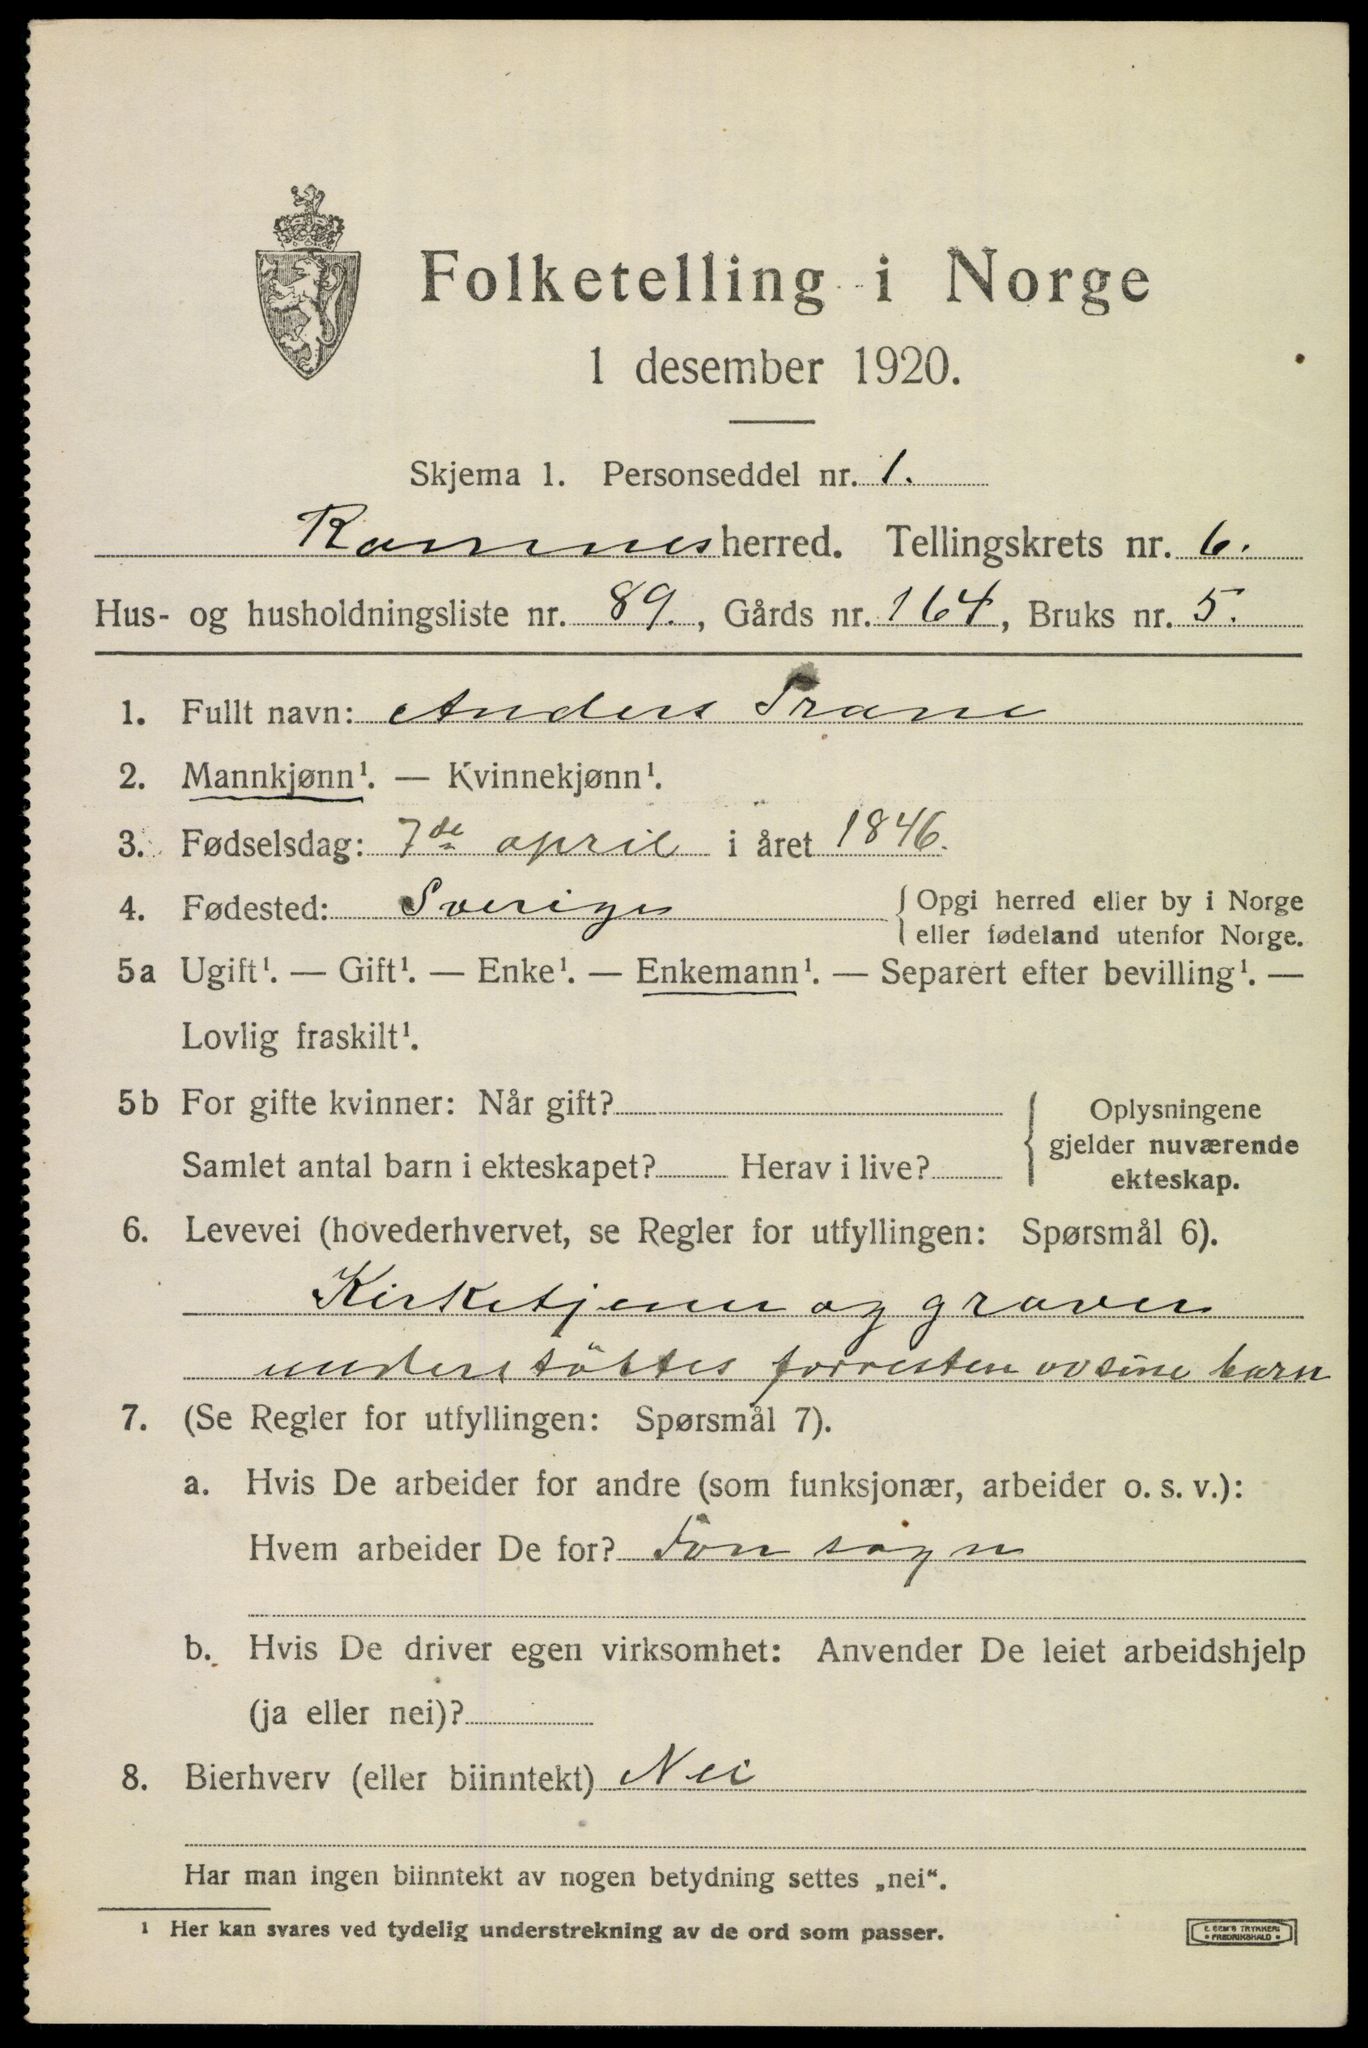 Folketelling i Norge
1 desember 1920.
Skjema 1. Personseddel nr. 1.
Ramnes herred. Tellingskrets nr. 6.
Hus- og husholdningsliste nr. 89., Gårds nr. 164, Bruks nr. 5.
1. Fullt navn: Anders Trane
2. Mannkjønn¹. — Kvinnekjønn¹.
3. Fødselsdag: 7de april i året 1846.
4. Fødested: Sverige { Opgi herred eller by i Norge
eller fødeland utenfor Norge.
5a Ugift¹. — Gift¹. — Enke¹. — Enkemann¹. — Separert efter bevilling¹. —
Lovlig fraskilt¹.
5b For gifte kvinner: Når gift?
Samlet antal barn i ekteskapet? Herav i live?
Oplysningene
gjelder nuværende
ekteskap.
6. Levevei (hovederhvervet, se Regler for utfyllingen: Spørsmål 6).
Kirketjener og graver
understöttes forresten av sine barn
7. (Se Regler for utfyllingen: Spørsmål 7).
a. Hvis De arbeider for andre (som funksjonær, arbeider o. s. v.):
Hvem arbeider De for? Fon sogn
b. Hvis De driver egen virksomhet: Anvender De leiet arbeidshjelp
(ja eller nei)?
8. Bierhverv (eller biinntekt) Nei
Har man ingen biinntekt av nogen betydning settes „nei“.
¹ Her kan svares ved tydelig understrekning av de ord som passer.
E. SEM'S TRYKKERI
FREDRIKSHALD